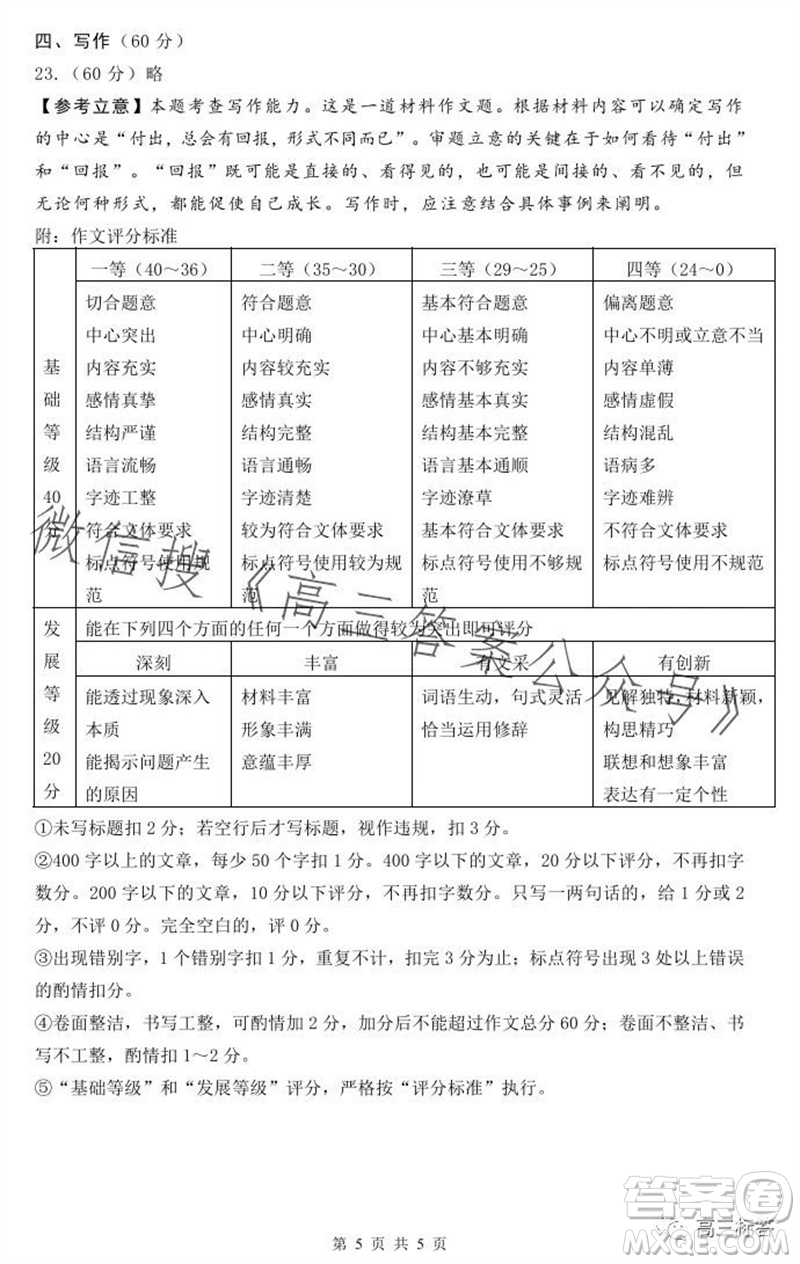 四、写作（60 分）
23.（60 分）略
【参考立意】本题考查写作能力。这是一道材料作文题。根据材料内容可以确定写作
的中心是“付出，总会有回报，形式不同而已”。审题立意的关键在于如何看待“付出”
和“回报”。“回报”既可能是直接的、看得见的，也可能是间接的、看不见的，但
无论何种形式，都能促使自己成长。写作时，应注意结合具体事例来阐明。
附：作文评分标准
一等（40～36） 二等（35～30） 三等（29～25） 四等（24～0）
基础等级40分
切合题意 符合题意 基本符合题意 偏离题意
中心突出 中心明确 中心基本明确 中心不明或立意不当
内容充实 内容较充实 内容不够充实 内容单薄
感情真挚 感情真实 感情基本真实 感情虚假
结构严谨 结构完整 结构基本完整 结构混乱
语言流畅 语言通畅 语言基本通顺 语病多
字迹工整 字迹清楚 字迹潦草 字迹难辨
符合文体要求 较为符合文体要求 基本符合文体要求 不符合文体要求
标点符号使用规范 标点符号使用较为规范 标点符号使用不够规范 标点符号使用不规范
发展等级20分
能在下列四个方面的任何一个方面做得较为突出即可评分
深刻 丰富 有文采 有创新
能透过现象深入 材料丰富 词语生动，句式灵活 见解独特，材料新颖，
本质 形象丰满 恰当运用修辞 构思精巧
能揭示问题产生 意蕴丰厚 联想和想象丰富
的原因 表达有一定个性
①未写标题扣 2 分；若空行后才写标题，视作违规，扣 3 分。
②400 字以上的文章，每少 50 个字扣 1 分。400 字以下的文章，20 分以下评分，不再扣字
数分。200 字以下的文章，10 分以下评分，不再扣字数分。只写一两句话的，给 1 分或 2
分，不评 0 分。完全空白的，评 0 分。
③出现错别字，1 个错别字扣 1 分，重复不计，扣完 3 分为止；标点符号出现 3 处以上错误
的酌情扣分。
④卷面整洁，书写工整，可酌情加 2 分，加分后不能超过作文总分 60 分；卷面不整洁、书
写不工整，酌情扣 1～2 分。
⑤“基础等级”和“发展等级”评分，严格按“评分标准”执行。
微信搜《高三答案公众号》
第 5 页 共 5 页
答案卷
高三标答
MXQE.COM